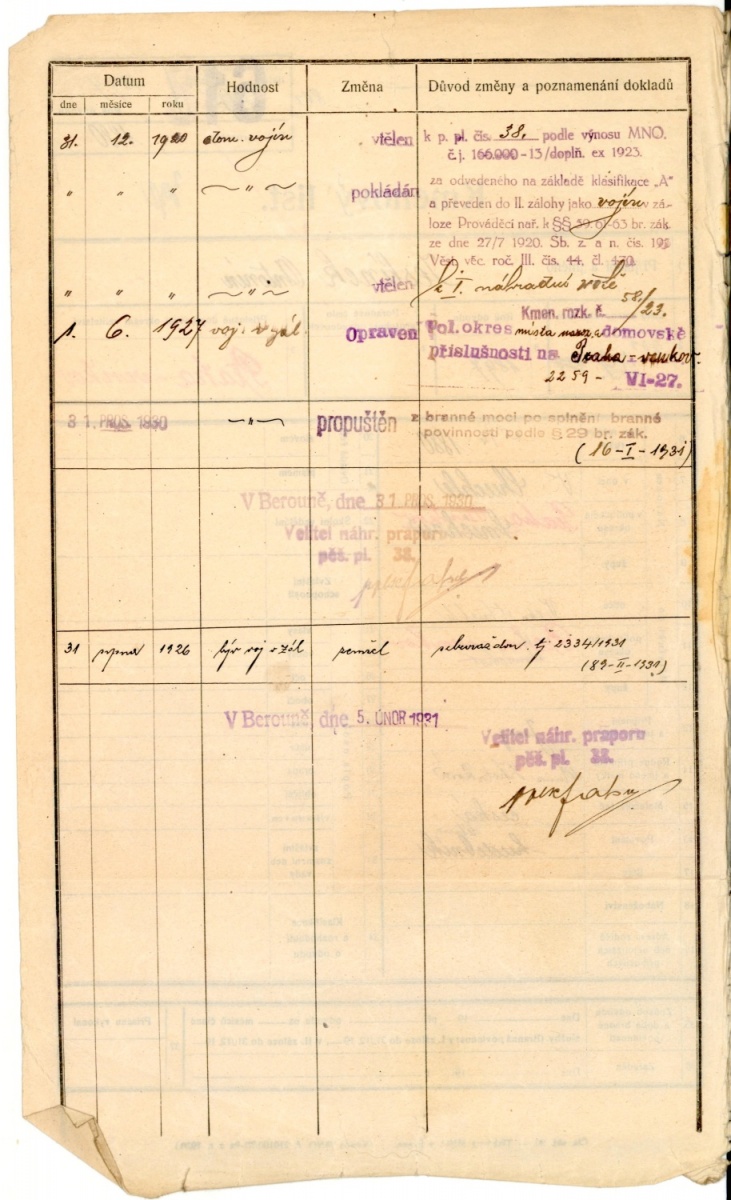 Datum
Hodnost
Změna
Důvod změny a poznamenání dokladů
dne měsíce roku
31. 12. 1920 vojín vtělen k p. pl. čís. 38. podle výnosu MNO.
č. j. 166.000-13/doplň. ex 1923.
" " " — " — pokládán za odvedeného na základě klasifikace „A"
a převeden do II. zálohy jako vojín v zá-
loze Prováděcí nař. k §§ 61-63 br. zák.
ze dne 27/7 1920. Sb. z. a n. čís.
Věst. věc. roč. III. čís. 44. čl. 470.
" " " — " — vtělen k I. náhradní rotě
Kmen. rozk. č. 58./23.
1. 6. 1927 voj. v zál. Opraven Pol. okres místa domovské
příslušnosti na Praha-venkov.
2259- VI-27.
31. PROS. 1930 — " — propuštěn z branné moci po splnění branné
povinnosti podle § 29 br. zák.
(16-I-1931)
V Berouně, dne 31 PROS. 1930
Velitel náhr. praporu
pěš. pl. 38.
31 srpna 1926 býv voj v zál zemřel čj 2334/1931
(89-II-1931)
V Berouně, dne 5. ÚNOR 1931
Velitel náhr. praporu
pěš. pl. 38.